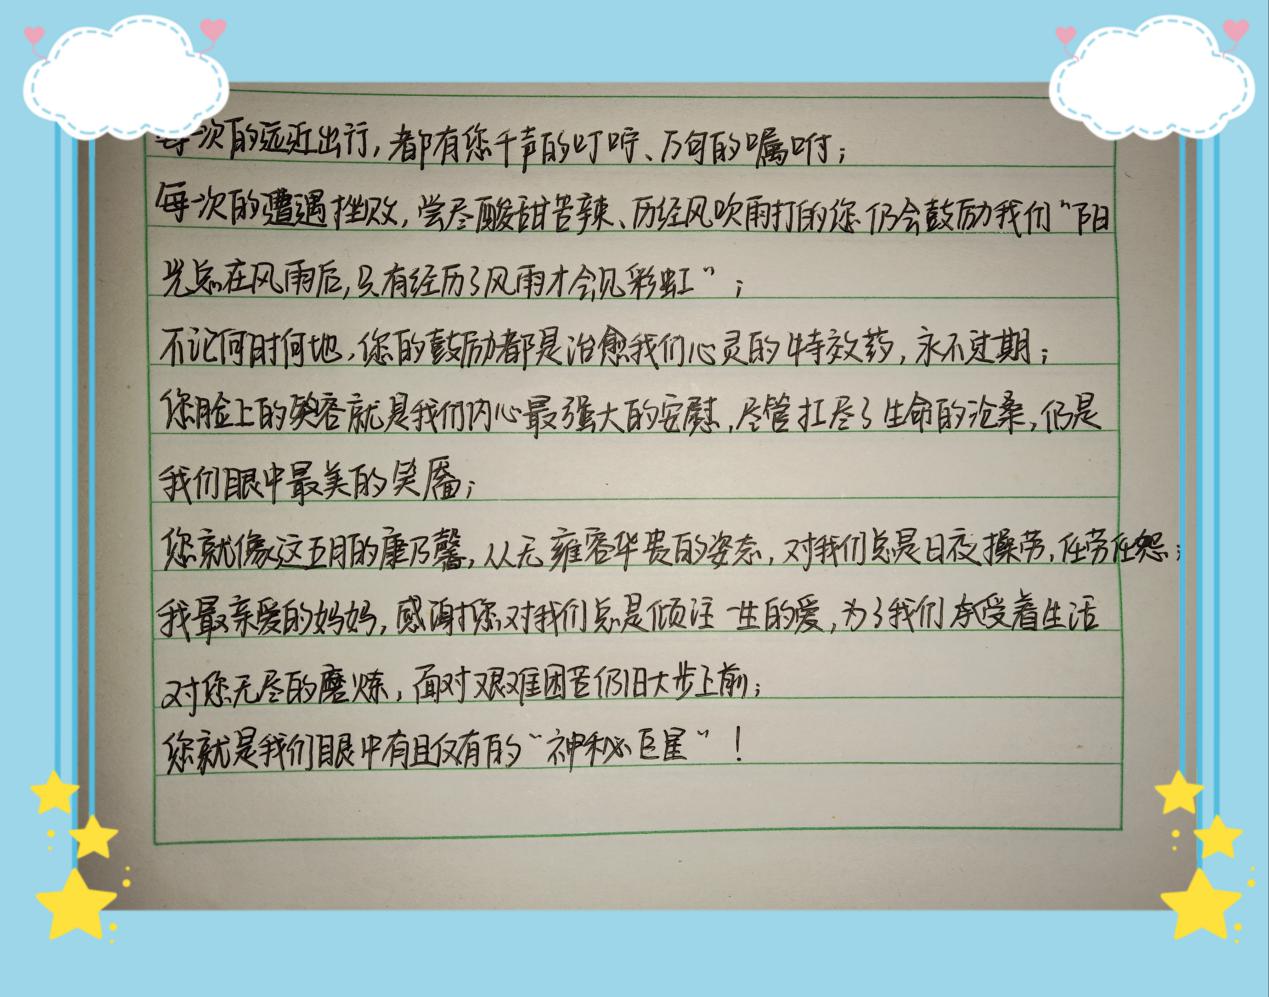 每次的远近出行，都有您千声的叮咛、万句的嘱咐；
每次的遭遇挫败，尝尽酸甜苦辣、历经风吹雨打的您仍会鼓励我们“阳
光总在风雨后，只有经历了风雨才会见彩虹”；
不论何时何地，您的鼓励都是治愈我们心灵的特效药，永不过期；
您脸上的笑容就是我们内心最强大的安慰，尽管扛尽了生命的沧桑，仍是
我们眼中最美的笑靥；
您就像这五月的康乃馨，从无雍容华贵的姿态，对我们总是日夜操劳，任劳任怨；
我最亲爱的妈妈，感谢您对我们总是倾注一生的爱，为了我们承受着生活
对您无尽的磨炼，面对艰难困苦仍旧大步上前；
您就是我们眼中有且仅有的“神秘巨星”！